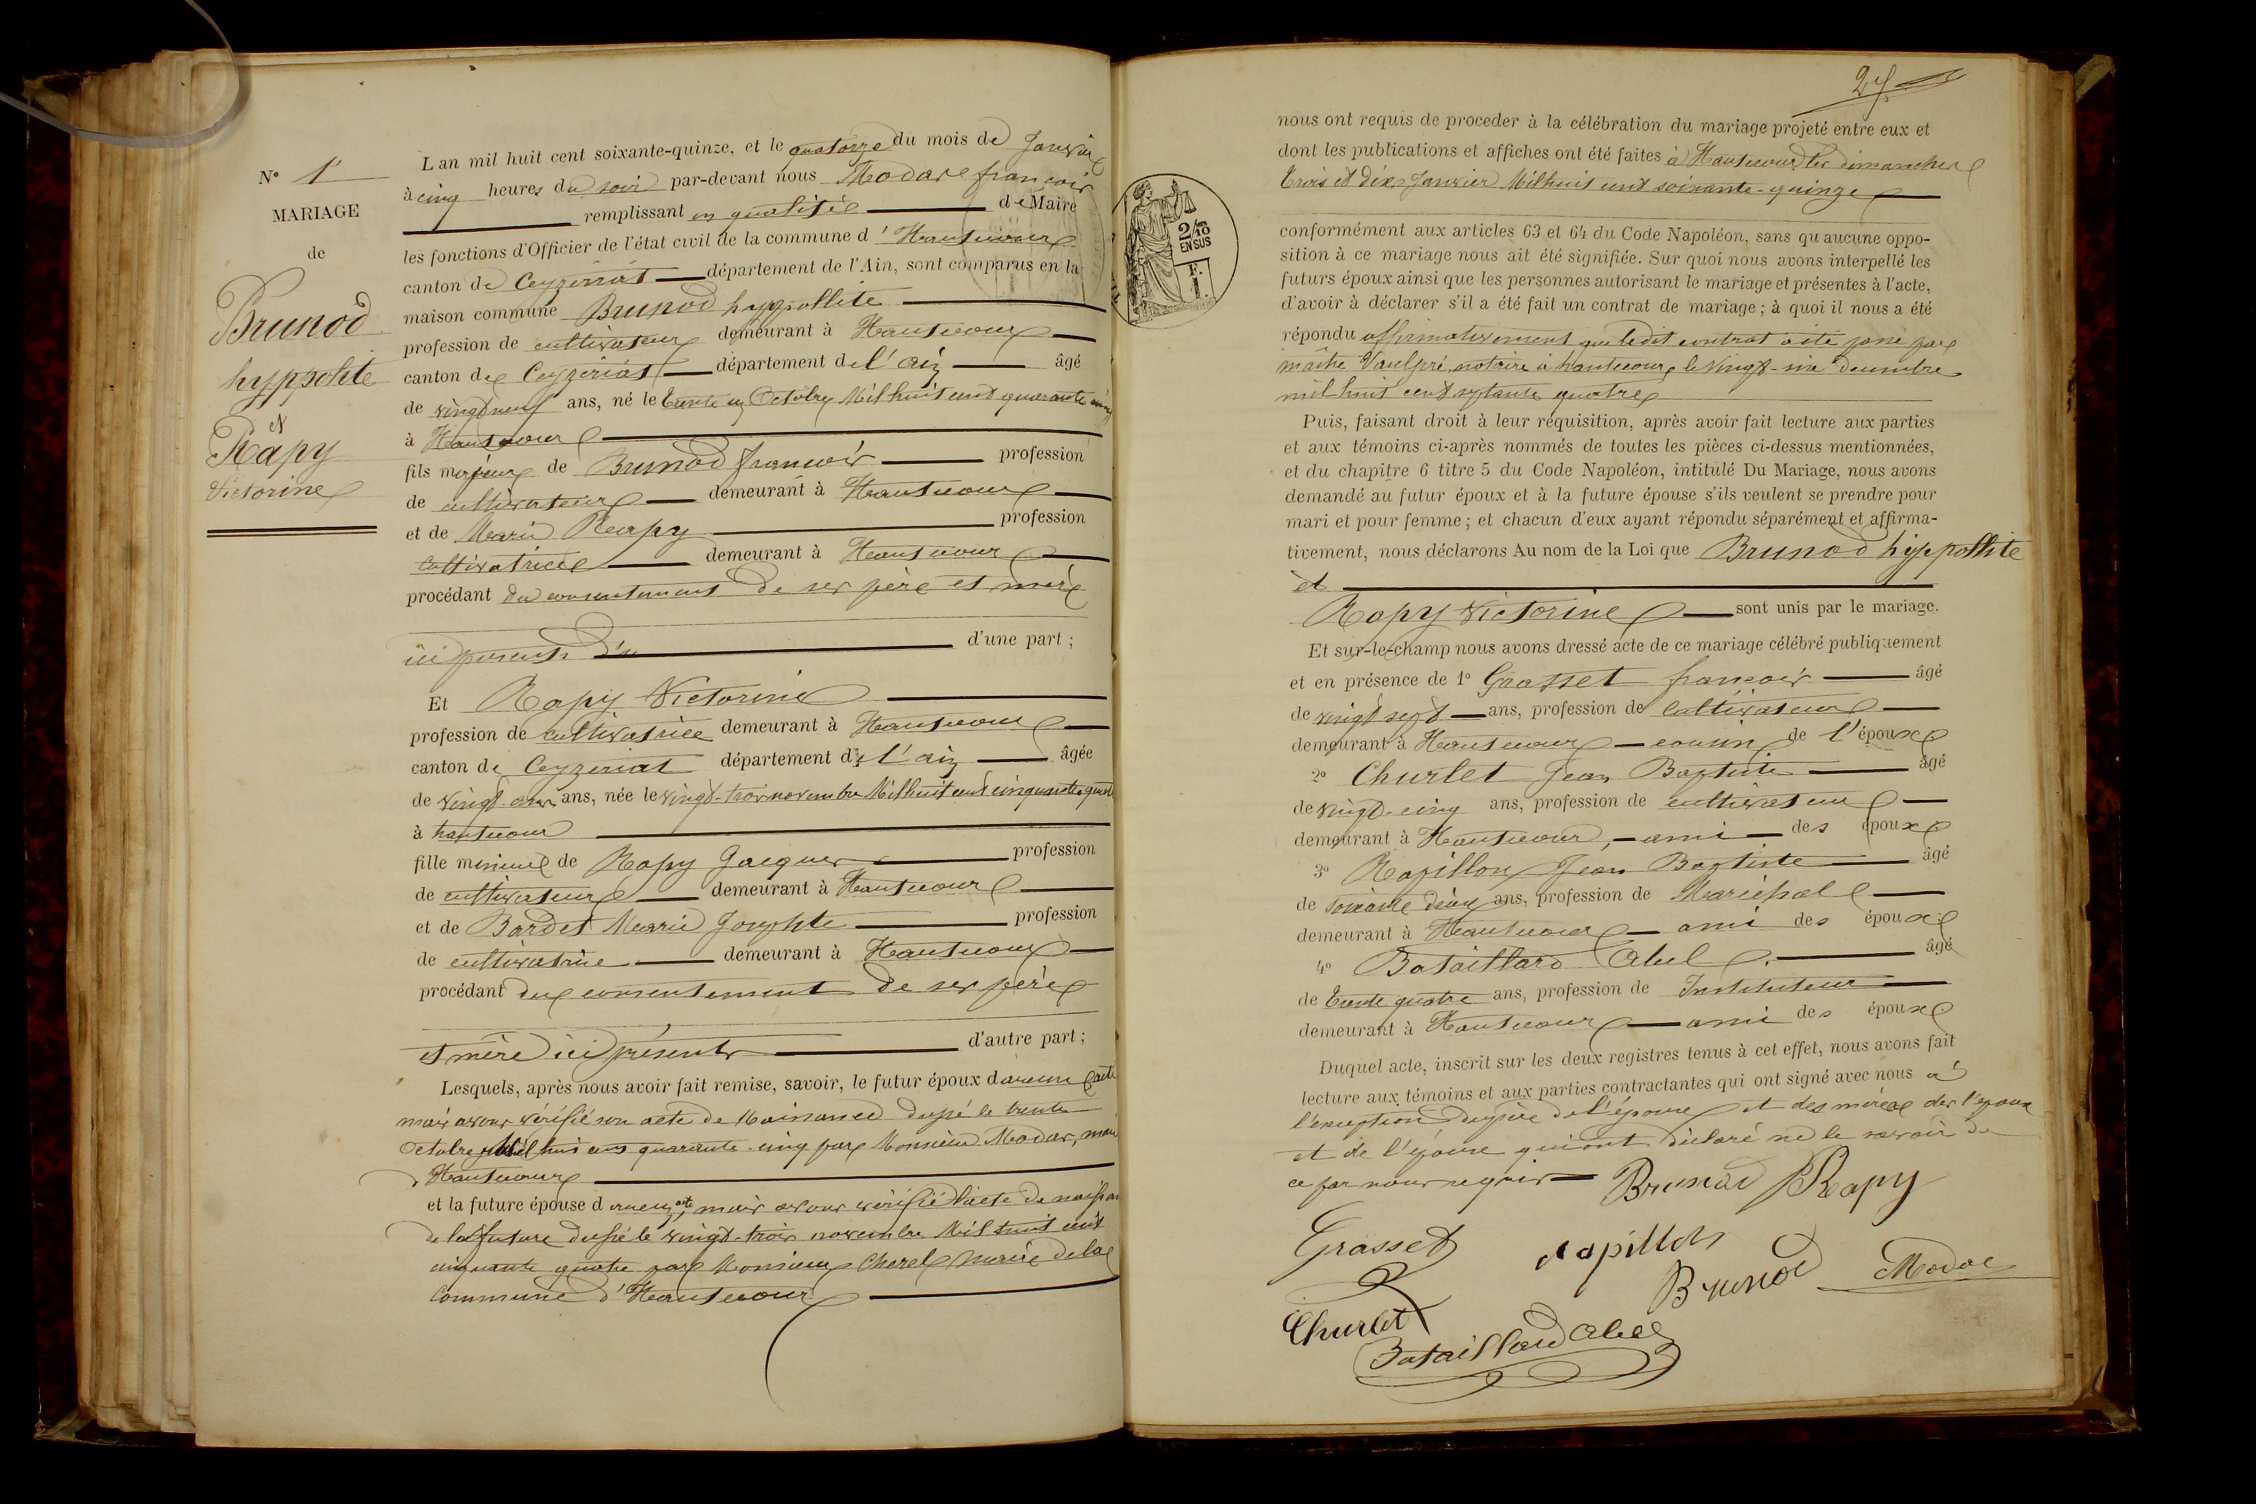 N° 1
MARIAGE
de
Brunod
hyppolite
et
Rapy
Victorine
L an mil huit cent soixante-quinze, et le quatorze du mois de Janvier
à cinq heures du soir par-devant nous Modas françois
remplissant en qualité de Maire
les fonctions d'Officier de l'état civil de la commune d' Hautecour
canton de Ceyzériat département de l'Ain, sont comparus en la
maison commune Brunod hyppollite
profession de cultivateur demeurant à Hautecour
canton de Ceyzériat département de l'ain âgé
de vingt neuf ans, né le trente un Octobre Mil huit cent quarante cinq
à Hautecour
fils majeur de Brunod françois profession
de cultivateur demeurant à Hautecour
et de Marie Rapy profession
cultivatrice demeurant à Hautecour
procédant du consentement de ses père et mère
ici présents d'une part ;
Et Rapy Victorine
profession de cultivatrice demeurant à Hautecour
canton de Ceyzeriat département de l'ain âgée
de vingt ans, née le vingt-trois novembre Mil huit cent cinquante quatre
à hautecour
fille mineure de Rapy Jacques profession
de cultivateur demeurant à Hautecour
et de Bardet Marie Josephte profession
de cultivatrice demeurant à Hautecour
procédant du consentement de ses père
et mère ici présents d'autre part ;
Lesquels, après nous avoir fait remise, savoir, le futur époux d'aucun acte
mais avons vérifié son acte de Naissance dressé le trente
Octobre Mil huit cent quarante-cinq par Monsieur Modas, maire
Hautecour
et la future épouse d'aucun acte, mais avons vérifié l'acte de naissance
de la future dressé le vingt-trois novembre Mil huit cent
cinquante quatre par Monsieur Charel Maire de la
Commune d'Hautecour
27
nous ont requis de proceder à la célébration du mariage projeté entre eux et
dont les publications et affiches ont été faites à Hautecour les dimanches
trois et dix Janvier Mil huit cent soixante-quinze
2/10
EN SUS
F.
1.
conformément aux articles 63 et 64 du Code Napoléon, sans qu aucune oppo-
sition à ce mariage nous ait été signifiée. Sur quoi nous avons interpellé les
futurs époux ainsi que les personnes autorisant le mariage et présentes à l'acte,
d'avoir à déclarer s'il a été fait un contrat de mariage ; à quoi il nous a été
répondu affirmativement que ledit contrat a été passé par
maître Vaulpré, notaire à hautecour le vingt-six décembre
mil huit cent septante quatre
Puis, faisant droit à leur réquisition, après avoir fait lecture aux parties
et aux témoins ci-après nommés de toutes les pièces ci-dessus mentionnées,
et du chapitre 6 titre 5 du Code Napoléon, intitulé Du Mariage, nous avons
demandé au futur époux et à la future épouse s'ils veulent se prendre pour
mari et pour femme ; et chacun d'eux ayant répondu séparément et affirma-
tivement, nous déclarons Au nom de la Loi que Brunod hyppollite
et
Rapy Victorine sont unis par le mariage.
Et sur-le-champ nous avons dressé acte de ce mariage célébré publiquement
et en présence de 1° Grasset françois âgé
de vingt sept ans, profession de Cultivateur
demeurant à Hautecour cousin de l'époux
2° Churlet Jean Baptiste âgé
de vingt-cinq ans, profession de cultivateur
demeurant à Hautecour, ami des époux
3° Rapillon Jean Baptiste âgé
de soixante deux ans, profession de Maréchal
demeurant à Hautecour ami des époux
4° Bataillard Abel âgé
de trente quatre ans, profession de Instituteur
demeurant à Hautecour ami des époux
Duquel acte, inscrit sur les deux registres tenus à cet effet, nous avons fait
lecture aux témoins et aux parties contractantes qui ont signé avec nous à
l'exception du père de l'épouse et des mères de l'époux
et de l'épouse qui ont déclaré ne le savoir de
ce par nous requis Brunod Rapy
Grasset rapillon Brunod Modas
Churlet
Bataillard Abel